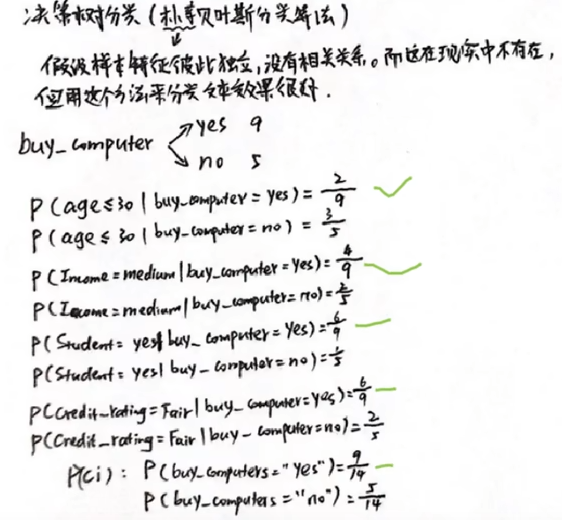 决策树分类（朴素贝叶斯分类算法）
假设样本特征彼此独立，没有相关关系。而这在现实中不存在，
但用这个方法来分类效果很好.
buy_computer
yes 9
no 5
P(age≤30 | buy_computer = yes) = 2/9
P(age≤30 | buy_computer = no) = 3/5
P(Income=medium | buy_computer = yes) = 4/9
P(Income=medium | buy_computer = no) = 2/5
P(Student = yes | buy_computer = yes) = 6/9
P(Student = yes | buy_computer = no) = 1/5
P(Credit_rating = Fair | buy_computer = yes) = 6/9
P(Credit_rating = Fair | buy_computer = no) = 2/5
P(Ci): P(buy_computers = "yes") = 9/14
P(buy_computers = "no") = 5/14